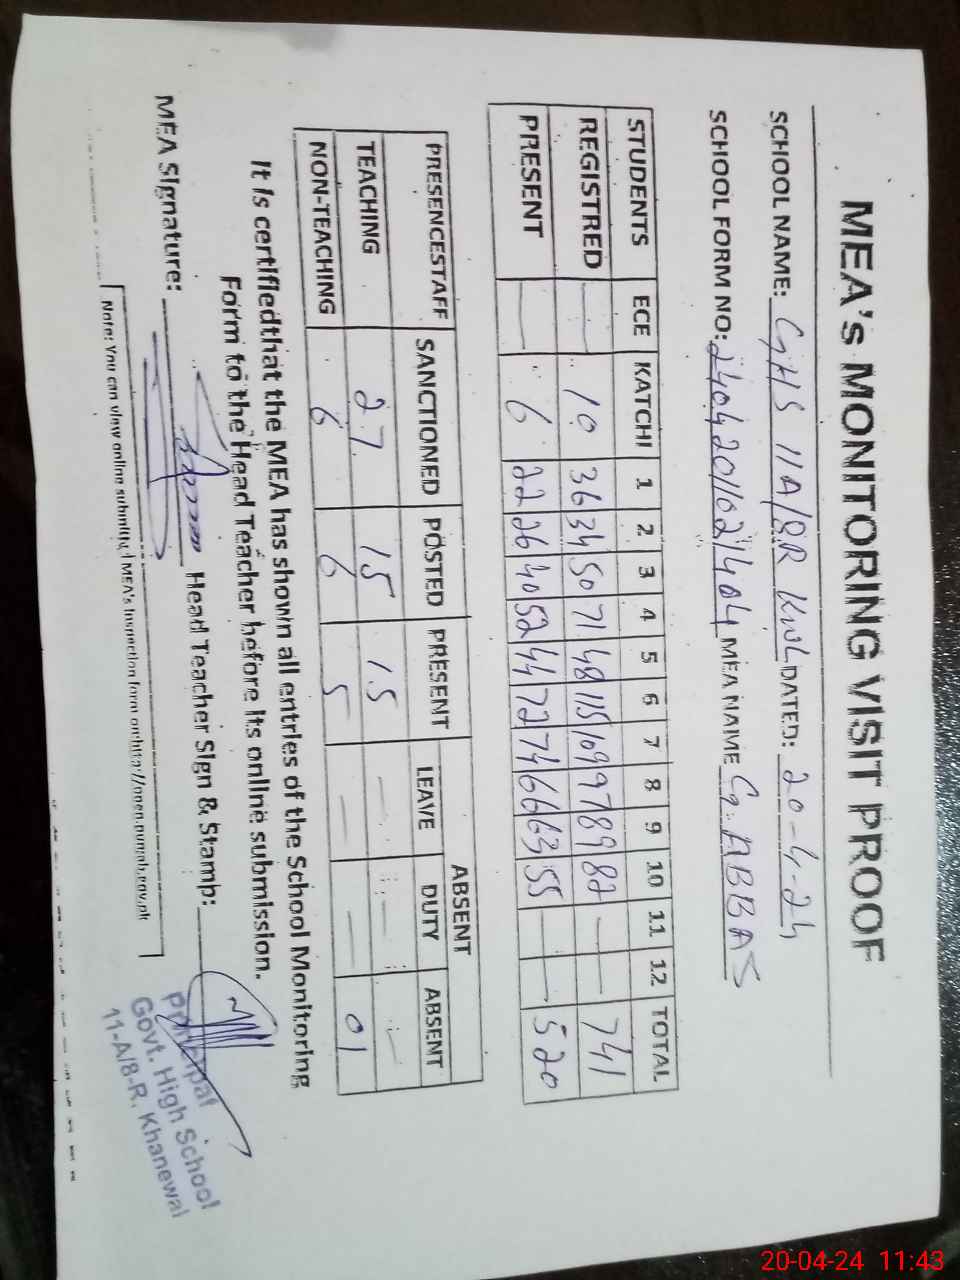 MEA's MONITORING VISIT PROOF
SCHOOL NAME: GHS 11A/8R KWL DATED: 20-4-24
SCHOOL FORM NO: 2404201021404 MEA NAME G. ABBAS
STUDENTS ECE KATCHI 1 2 3 4 5 6 7 8 9 10 11 12 TOTAL
REGISTRED — 10 36 34 50 71 48 115 109 97 89 82 — — 741
PRESENT — 6 22 26 40 52 44 72 74 66 63 55 — — 520
PRESENCESTAFF SANCTIONED POSTED PRESENT ABSENT
LEAVE DUTY ABSENT
TEACHING 27 15 15 — — —
NON-TEACHING 6 6 5 — — 01
It is certifiedthat the MEA has shown all entries of the School Monitoring
Form to the Head Teacher before its online submission.
MEA Signature: Head Teacher Sign & Stamp:
Principal
Govt. High School
11-A/8-R. Khanewal
Note: You can view online submitted MEA's inspection form on:http://open.punjab.gov.pk
20-04-24 11:43